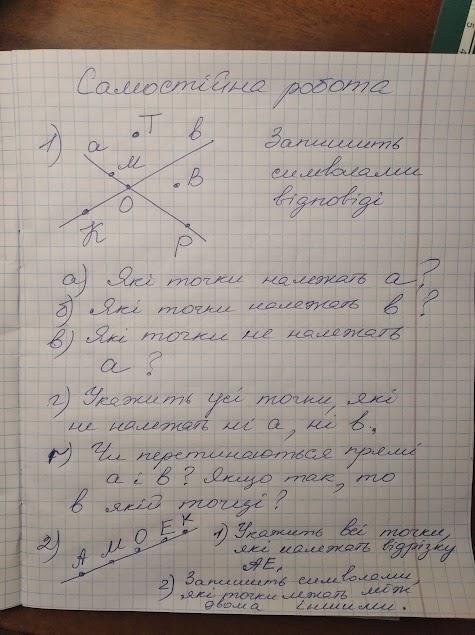 Самостійна робота
1)
а
Т
в
М
В
О
К
Р
Запишить
символами
відповіді
а) Які точки належать а?
б) Які точки належать в?
в) Які точки не належать
а?
г) Укажить усі точки, які
не належать ні а, ні в.
г) Чи перетинаються прямі
а і в? Якщо так, то
в якій точці?
2)
А М О Е К
1) Укажить всі точки,
які належать відрізку
АЕ.
2) Запишить символами,
які точки лежать між
двома іншими.